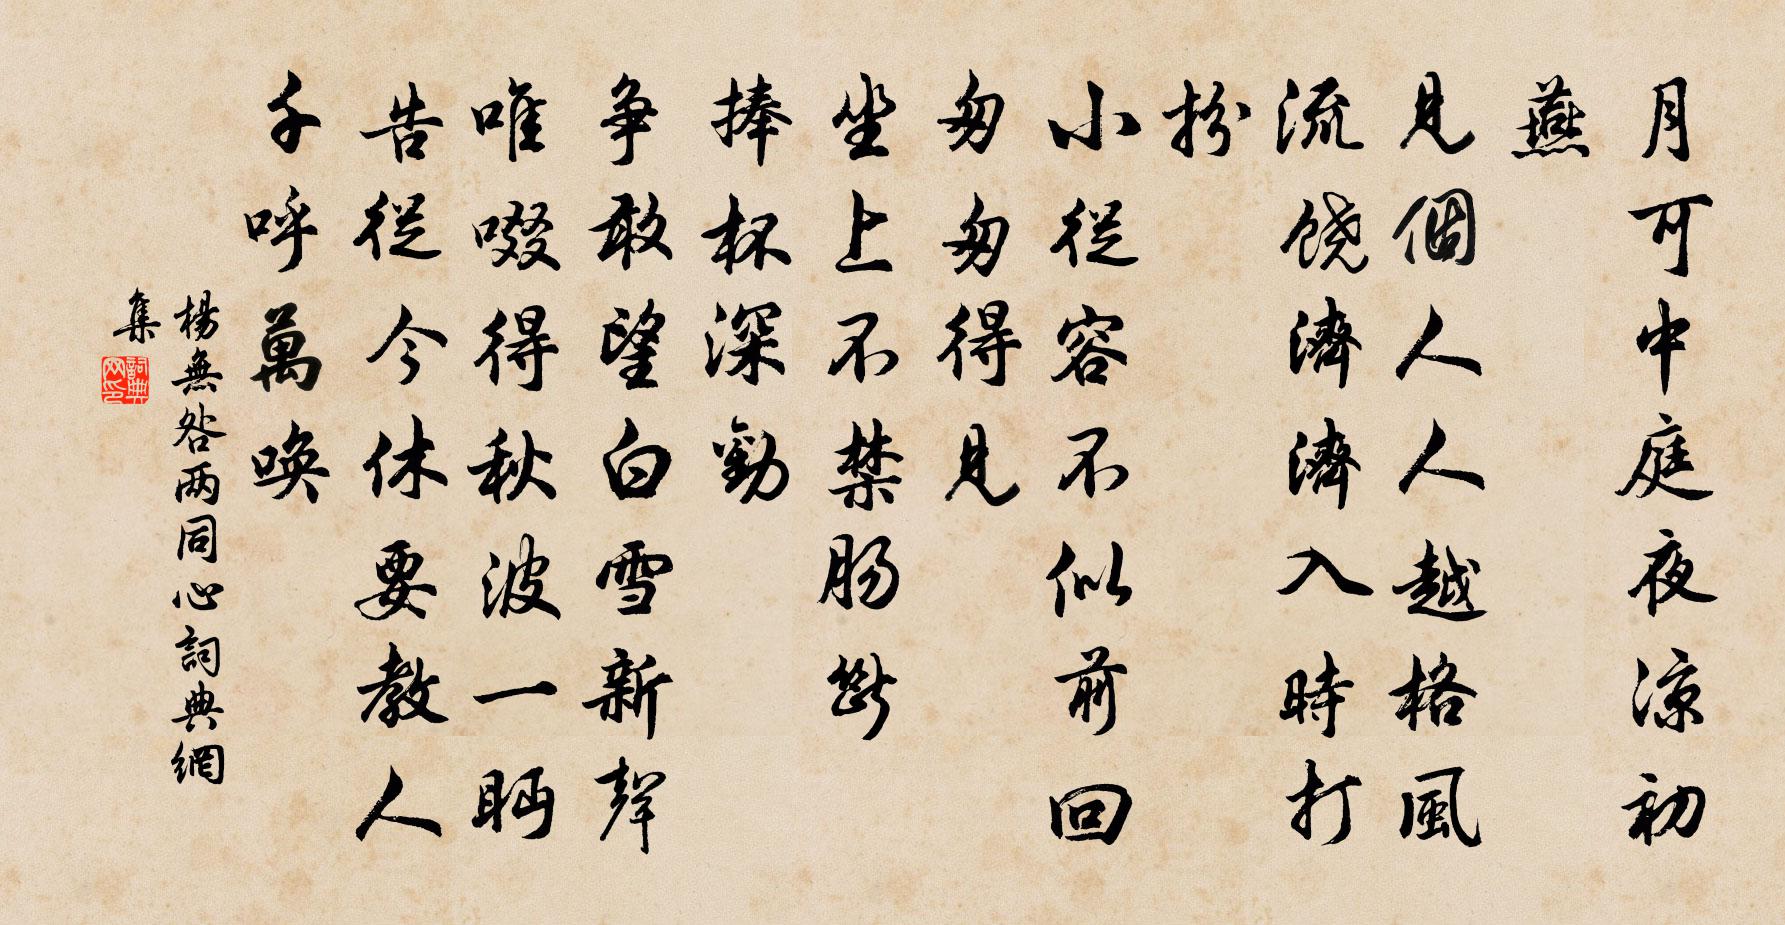 月可中庭夜涼初
燕
見個人人越格風
流饒濟濟入時打
扮
小從容不似前回
匆匆得見
坐上不禁腸斷
捧杯深勸
爭敢望白雪新聲
唯啜得秋波一眄
告從今休要教人
千呼萬喚
楊無咎两同心詞典網
集
詞典網印